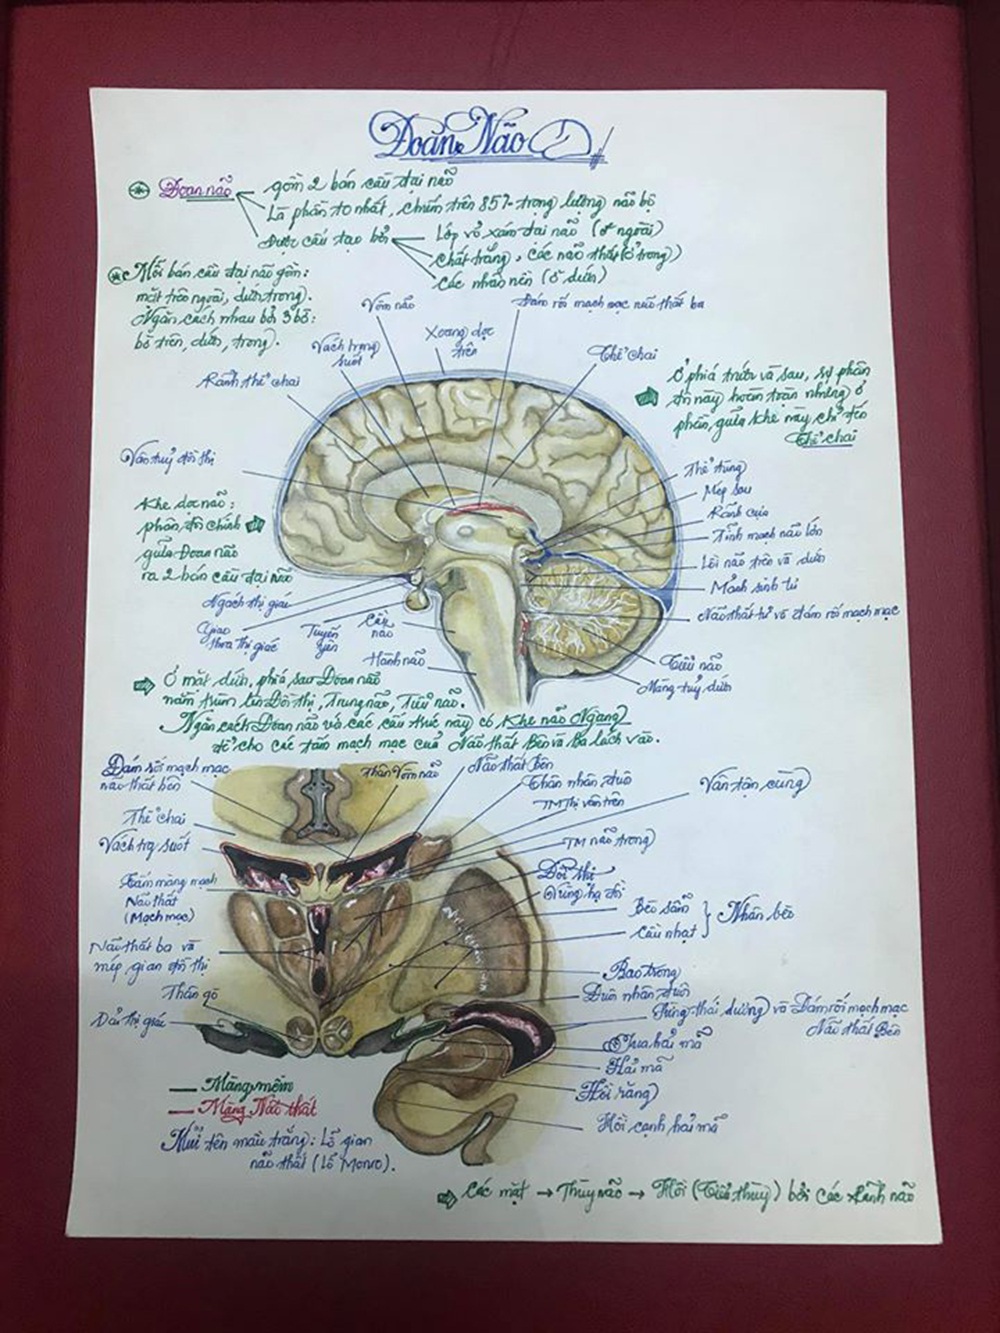 Đoan Não
Đoan não
gồm 2 bán cầu đại não
Là phần to nhất, chiếm trên 85% trọng lượng não bộ
Được cấu tạo bởi
Lớp vỏ xám đại não (ở ngoài)
chất trắng, các não thất (ở trong)
các nhân nền (ở dưới)
Mỗi bán cầu đại não gồm:
mặt trên ngoài, dưới, trong.
Ngăn cách nhau bởi 3 bờ:
bờ trên, dưới, trong.
Vòm não
Đám rối mạch mạc não thất ba
Xoang dọc
trên
Vách trong
suốt
Thể chai
Rãnh thể chai
Ở phía trước và sau, sự phân
đôi này hoàn toàn nhưng ở
phần giữa khe này chỉ đến
Thể chai
Vân tuỷ đồi thị
Khe dọc não:
phân đôi chính
giữa Đoan não
ra 2 bán cầu đại não
Thể tùng
Mép sau
Rãnh cựa
Tĩnh mạch não lớn
Lồi não trên và dưới
Mảnh sinh tư
Não thất tư và đám rối mạch mạc
Ngách thị giác
Giao
thoa thị giác
Tuyến
yên
Cầu
não
Hành não
Tiểu não
Màng tuỷ dưới
Ở mặt dưới, phía sau Đoan não
nằm trùm lên Đồi thị, Trung não, Tiểu não.
Ngăn cách Đoan não và các cấu trúc này có Khe não Ngang
để cho các tấm mạch mạc của Não thất Bên và Ba lách vào.
Đám rối mạch mạc
não thất bên
Thân Vòm não
Não thất Bên
Thân nhân đuôi
TM Thị vân trên
Vân tận cùng
Thể chai
Vách trg suốt
TM não trong
Tấm màng mạch
Não thất
(Mạch mạc)
Đồi thị
Vùng hạ thị
Bèo sẫm
Cầu nhạt
Nhân bèo
Não thất ba và
mép gian đồi thị
Bao trong
Thân gò
Đuôi nhân đuôi
Sừng thái dương và Đám rối mạch mạc
Não thất Bên
Dải thị giác
Tua hải mã
Hải mã
Hồi răng
Hồi cạnh hải mã
Màng mềm
Màng Não thất
Mũi tên màu trắng: Lỗ gian
não thất (Lỗ Monro).
Các mặt → Thùy não → Hồi (Tiểu thùy) bởi các rãnh não